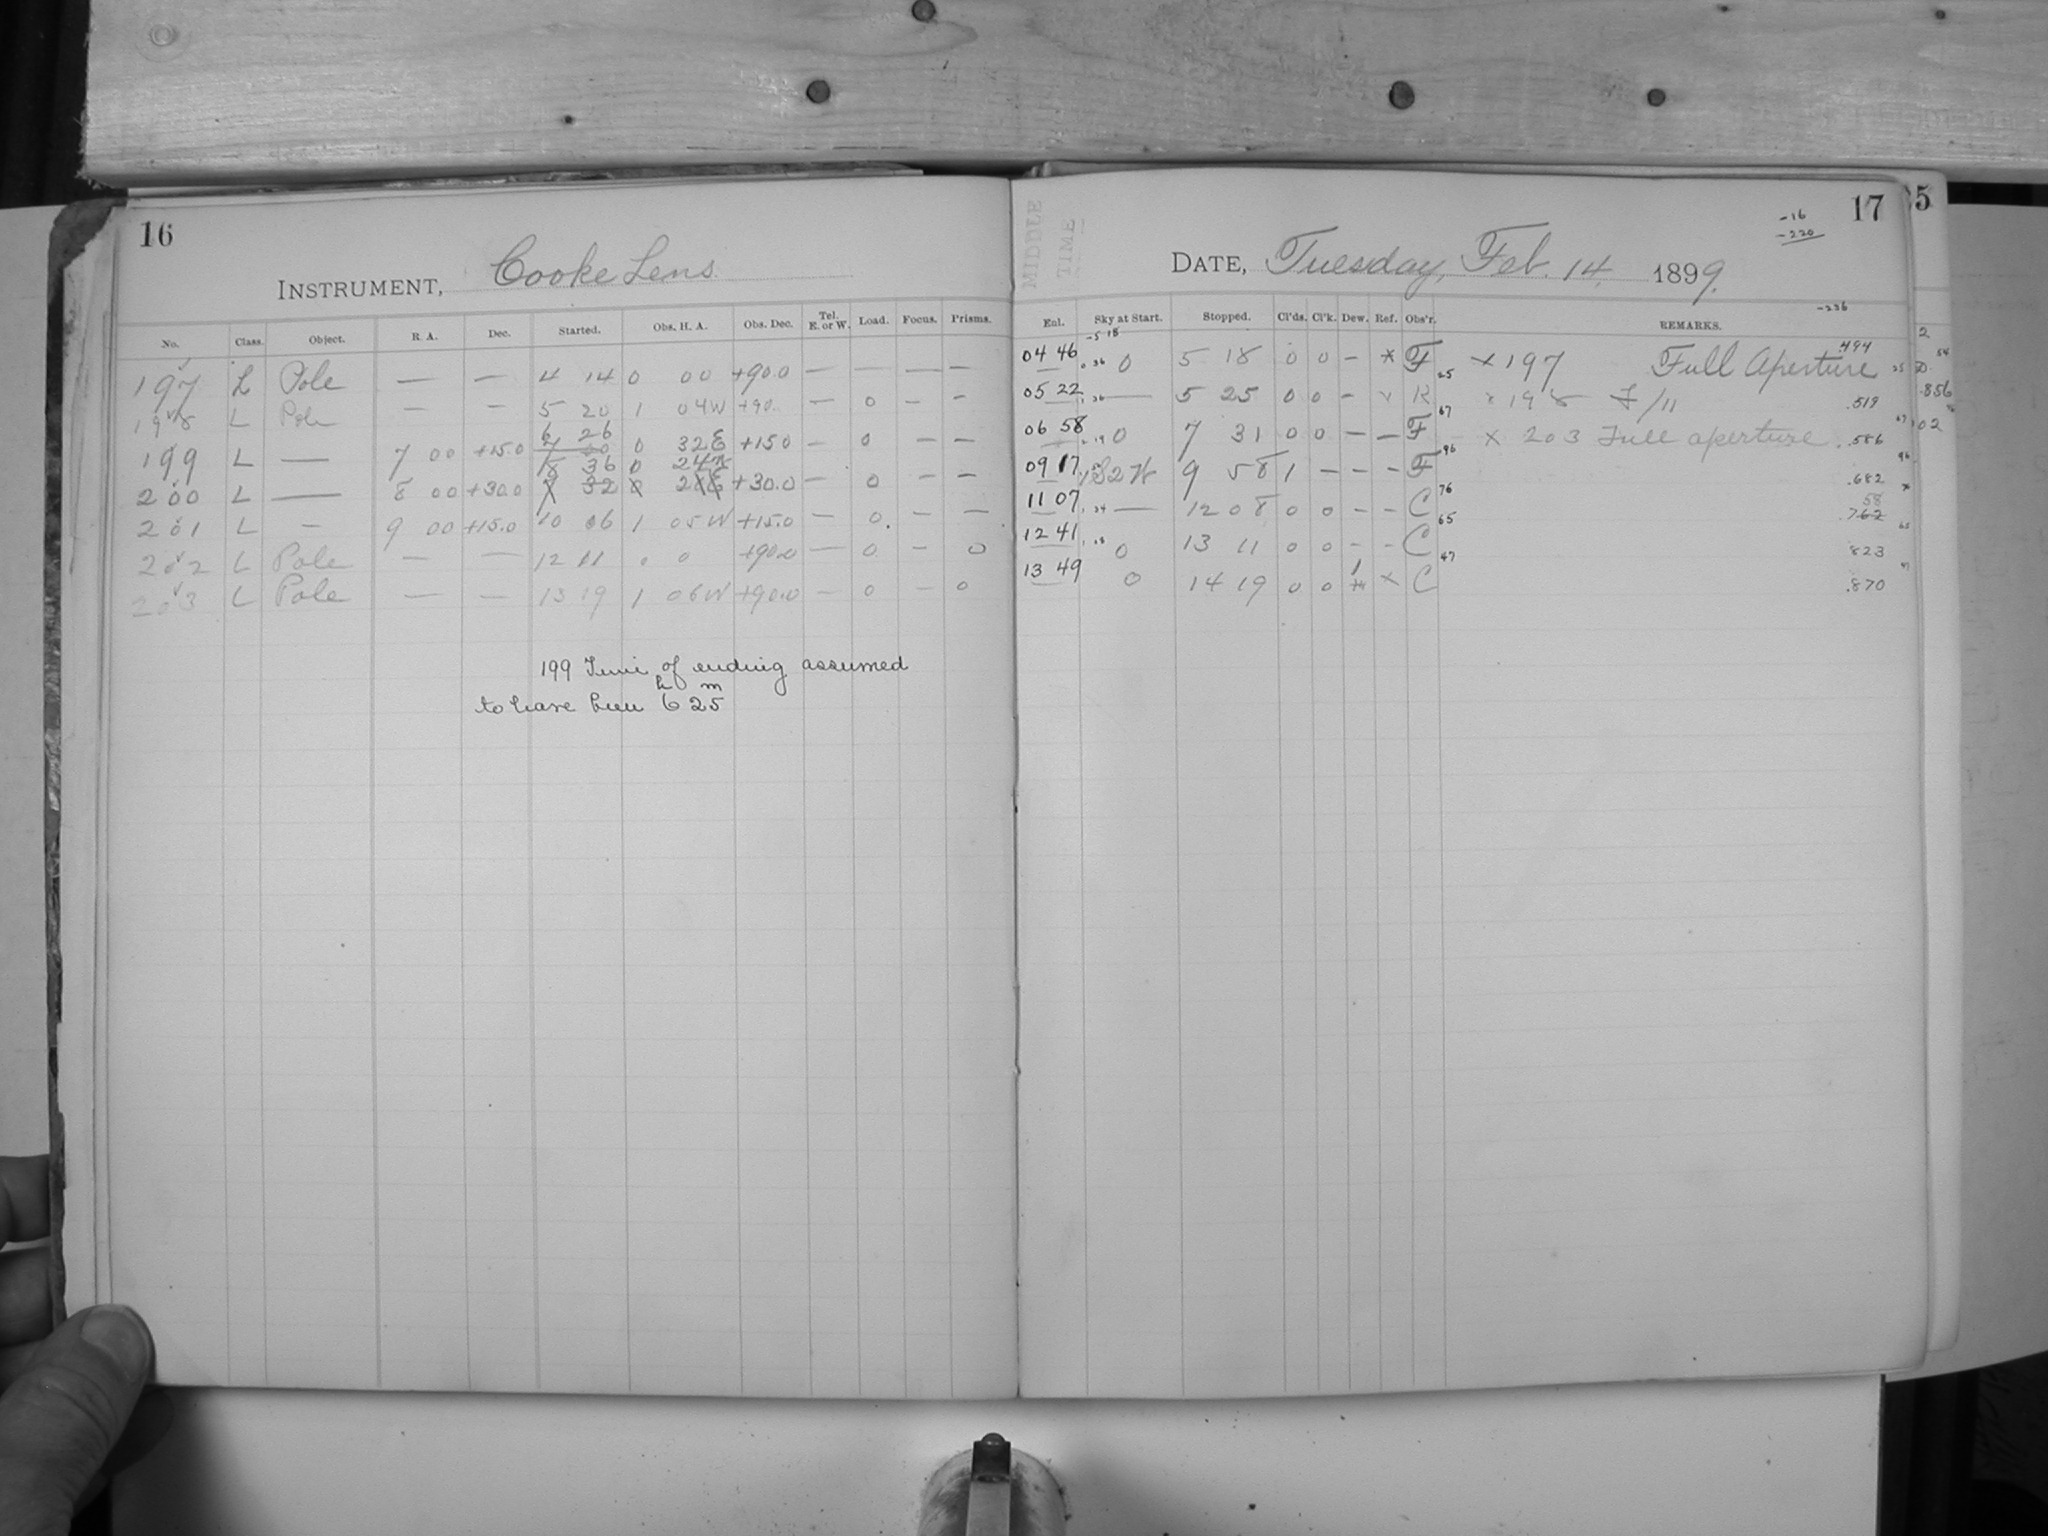 16
INSTRUMENT, Cooke Lens.
No. Class. Object. R. A. Dec. Started. Obs. H. A. Obs. Dec. Tel. E. or W. Load. Focus. Prisms.
197 L Pole — — 4 14 0 00 +90.0 — — — —
198 L Pole — — 5 20 1 04W +90. — 0 — —
6 26
199 L — 7 00 +15.0 0 32E +15.0 — 0 — —
8 36 0
200 L — 8 00 +30.0 32 +30.0 — 0 — —
201 L — 9 00 +15.0 10 06 1 05W +15.0 — 0 — —
202 L Pole — — 12 11 0 0 +90.0 — 0 — 0
203 L Pole — — 13 19 1 06W +90.0 — 0 — 0
199 Time of ending assumed
h m
to have been 6 25
MIDDLE
TIME
17
-16
-220
-236
DATE, Tuesday, Feb. 14, 1899.
Ex1. Sky at Start. Stopped. Cl'ds. Cl'k. Dew. Ref. Obs'r. REMARKS.
-5 18
04 46 0 5 18 0 0 — * F × 197 Full Aperture .494
05 22 — 5 25 0 0 — R 25 198 F/11 .519
06 58 0 7 31 0 0 — — F 67 × 203 Full aperture .586
09 17 9 58 1 — — — F 96 .682
11 07 — 12 08 0 0 — — C 76 .762 58
12 41 0 13 11 0 0 — — C 65 823
13 49 0 14 19 0 0 1 × C 47 .870
5
2
.856
02